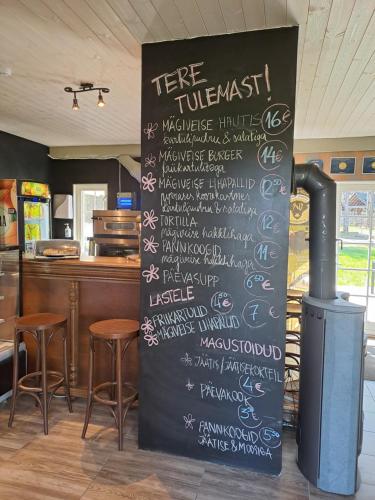 TERE
TULEMAST!
MÄGIVEISE HAUTIS 16€
kartulipudru & salatiga
MÄGIVEISE BURGER 14€
friikartulitega
MÄGIVEISE LIHAPALLID
kartulipudru & salatiga
TORTILLA 12€
mägiveise hakklihaga
PANNKOOGID 11€
mägiveise hakklihaga
PÄEVASUPP
LASTELE
FRIIKARTULID
MÄGIVEISE LIHAPALLID 7€
MAGUSTOIDUD
JÄÄTIS/JÄÄTISEKOKTEIL
4€
PÄEVAKOOK
3€
PANNKOOGID 5€
JÄÄTISE & MOOSIGA